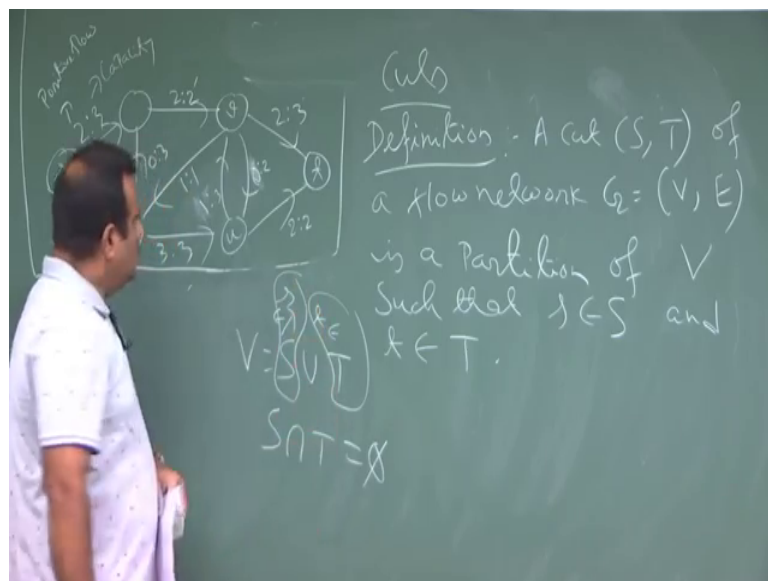 Positive flow
Capacity
2:3
2:2
2:3
0:3
1:1
3:3
2:2
u
t
Cuts
Definition :- A cut (S, T) of
a flow network G = (V, E)
is a Partition of V
Such that s ∈ S and
t ∈ T.
V = S ∪ T
S ∩ T = ∅